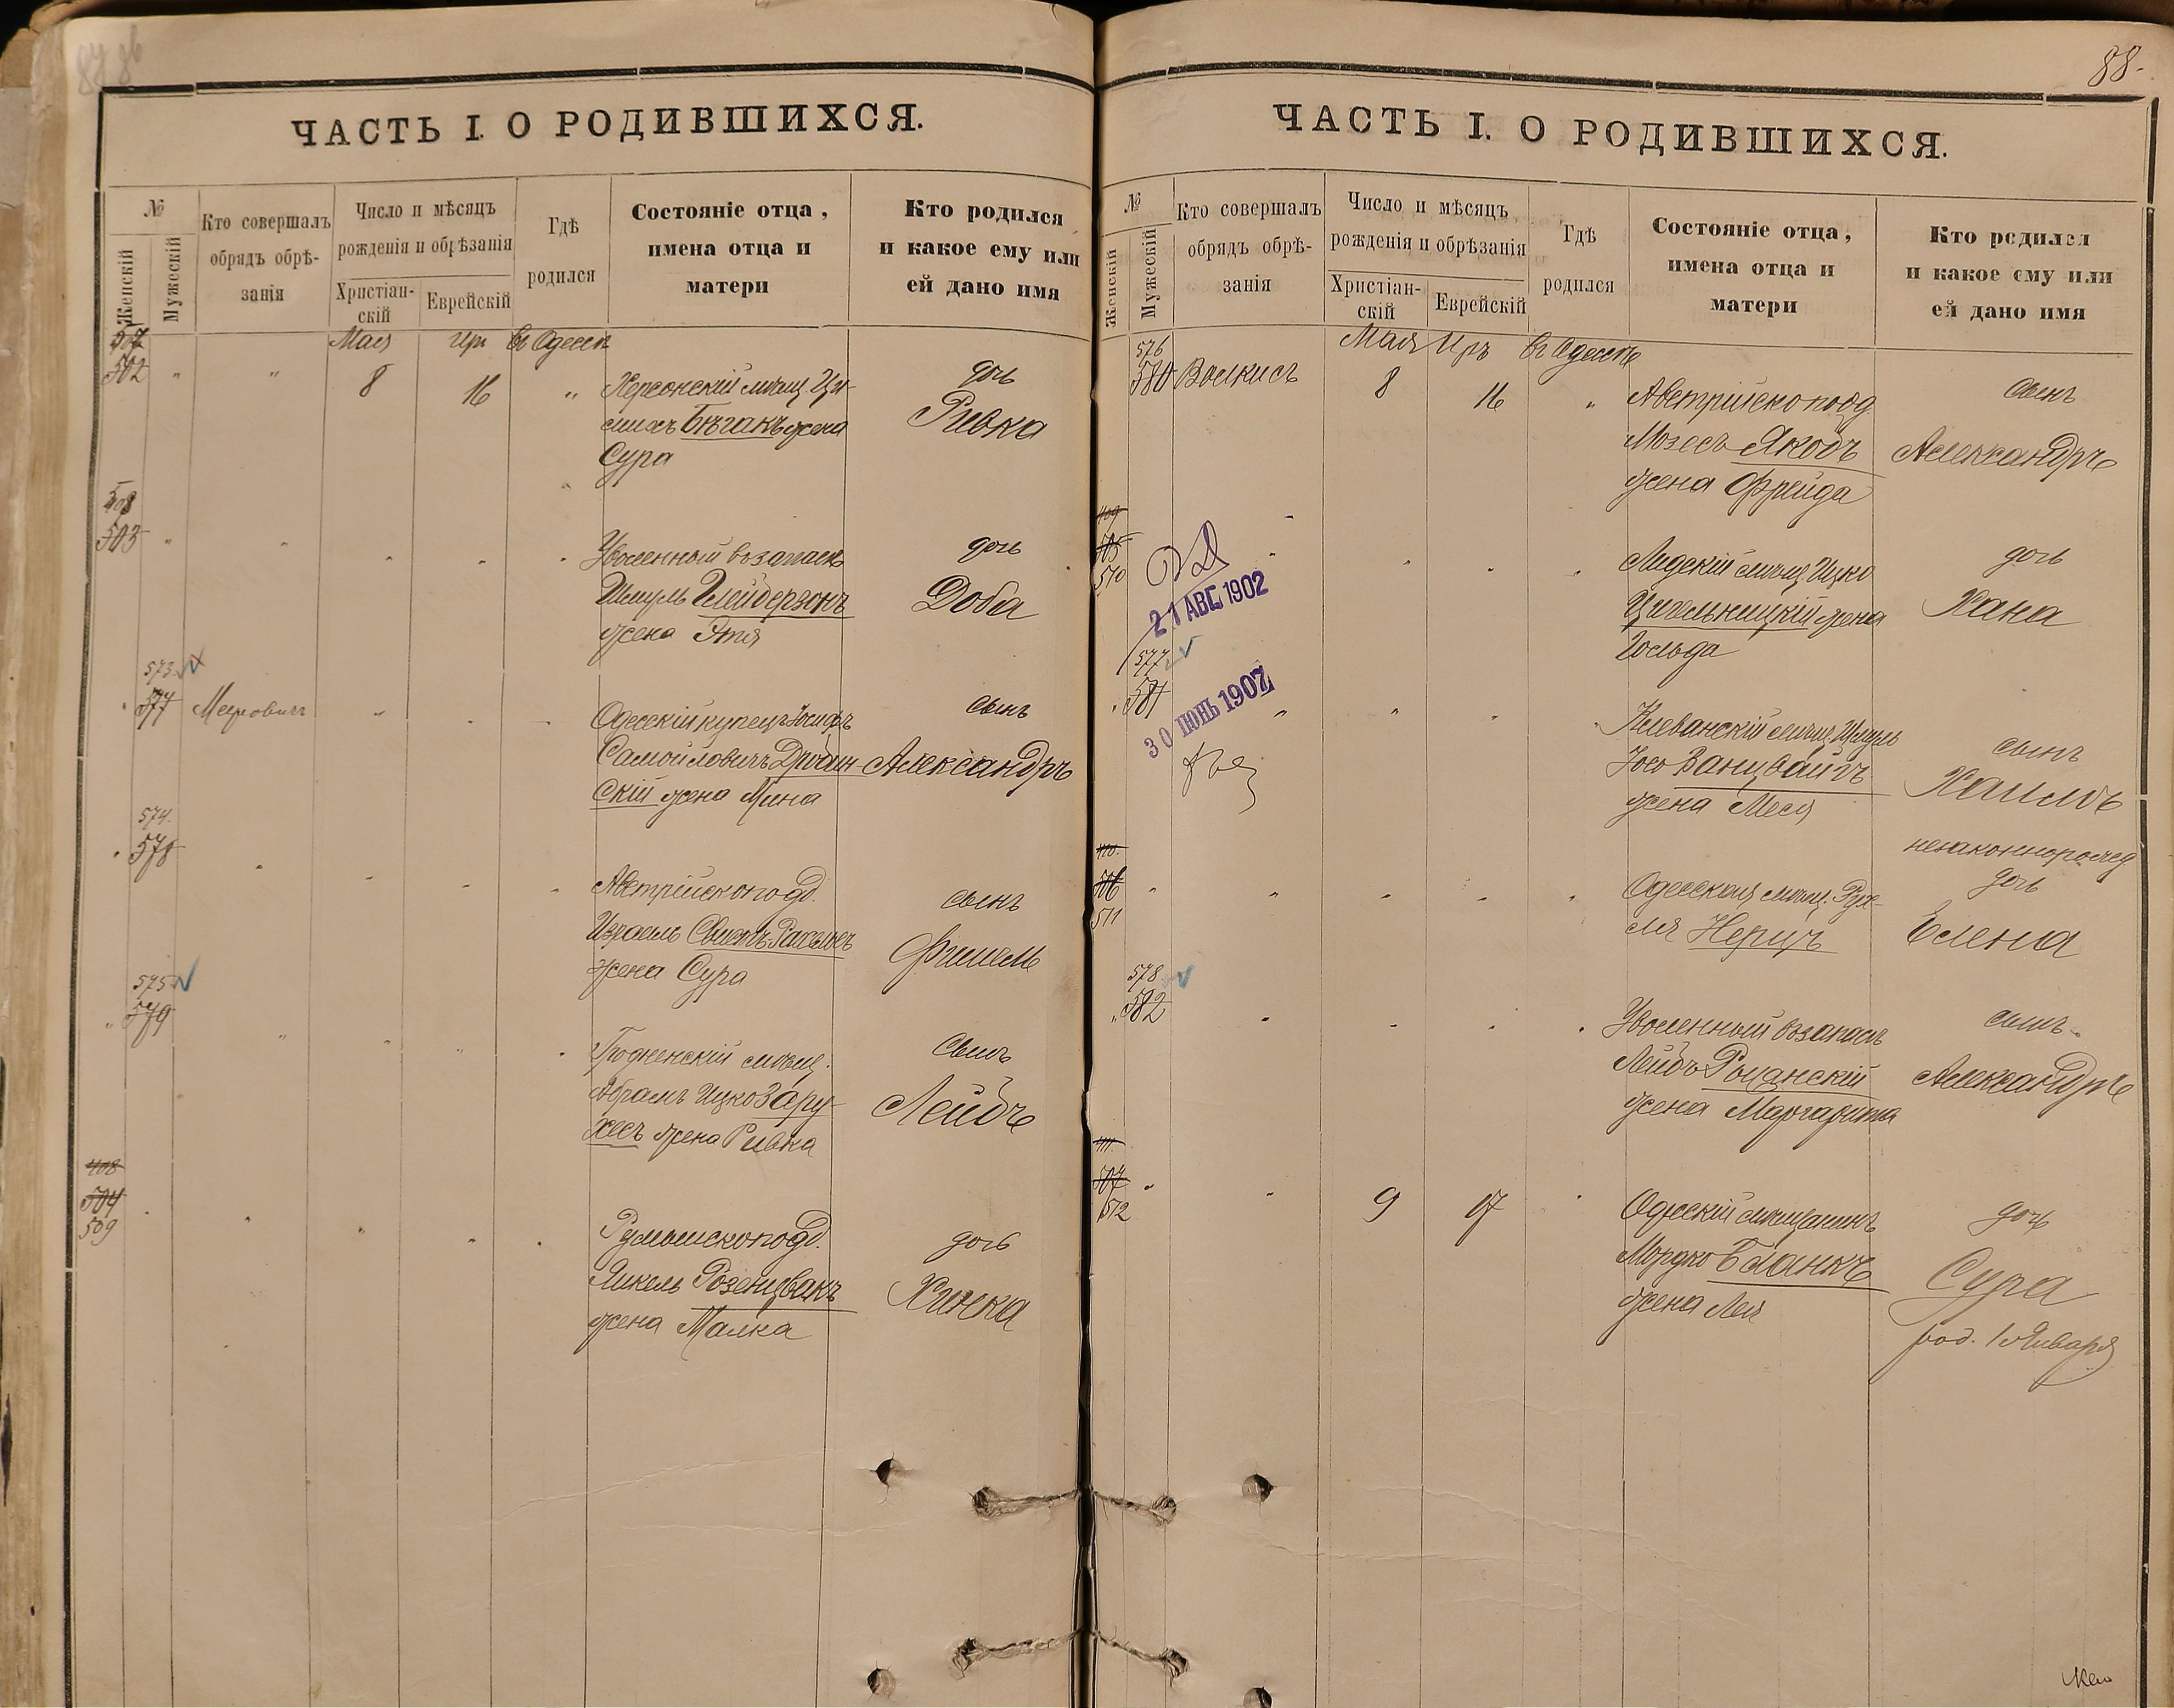 88.
ЧАСТЬ I. О РОДИВШИХСЯ.
№
Женскій
Мужескій
Кто совершалъ
обрядъ обрѣ-
занія
Число и мѣсяцъ
рожденія и обрѣзанія
Христіан-
скій
Еврейскій
Гдѣ
родился
Состояніе отца,
имена отца и
матери
Кто родился
и какое ему или
ей дано имя
Мая Ир въ Одессѣ
507
502 " " 8 16 "
Херсонскій мѣщ. Ци-
махъ Бѣганъ жена
Сура
дочь
Ривка
508
503
Уволенный въ запасъ
Шмуль Глейдерзонъ
жена Этя
дочь
Доба
573
577 Меерович
Одесскій купецъ Іосифъ
Самойловичъ Дробин-
скій жена Мина
сынъ
Александръ
574.
578
Австрійскоподд.
Израель
жена Сура
сынъ
Фишель
575
579
Гродненскій мѣщ.
Абрамъ Ицко Зару-
хесъ жена Ривка
Сынъ
Лейбъ
408
504
509
Румынскоподд.
Янкель Розенцвакъ
жена Малка
дочь
Хинка
ЧАСТЬ I. О РОДИВШИХСЯ.
№
Женскій
Мужескій
Кто совершалъ
обрядъ обрѣ-
занія
Число и мѣсяцъ
рожденія и обрѣзанія
Христіан-
скій
Еврейскій
Гдѣ
родился
Состояніе отца,
имена отца и
матери
Кто родился
и какое ему или
ей дано имя
Мая Иръ въ Одессѣ
576
580 Волкисъ 8 16 "
Австрійскоподд.
Мозесъ Якобъ
жена Фрейда
сынъ
Александръ
409
505
510
21 АВГ. 1902
Лидскій мѣщ. Ицко
Цигельницкій жена
Гольда
дочь
Хана
577
581
30 ІЮНЬ 1907
Клеванскій мѣщ. Шмуль
Іось Ванцвайгъ
жена Меся
сынъ
Хаимъ
410.
506
511
Одесская мѣщ. Рух-
ля Нерцъ
незаконнорожд
дочь
Елена
578
582
Уволенный въ запасъ
Лейбъ Рощанскій
жена Маргарита
сынъ
Александръ
411.
507
512
9 17
Одесскій мѣщанинъ
Мордко Бланкъ
жена Лея
дочь
Сура
род. 1 Января